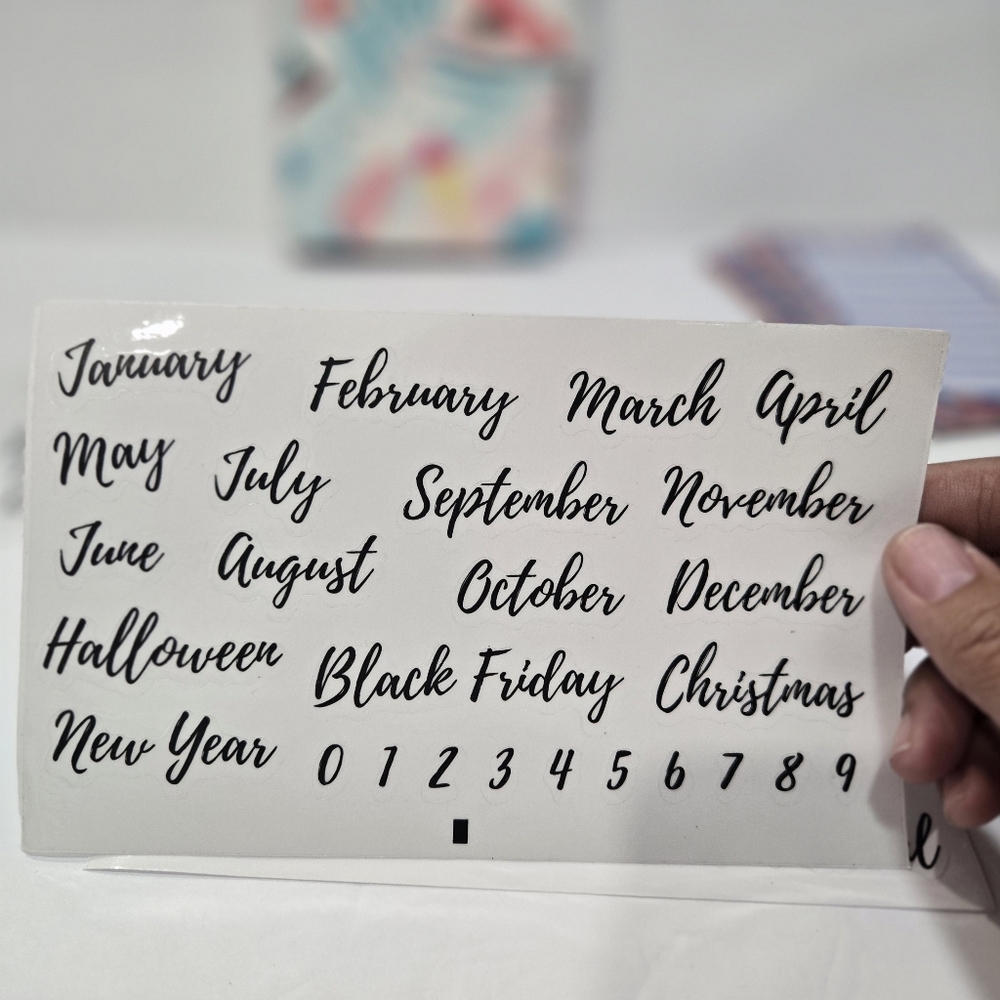 January February March April
May July September November
June August October December
Halloween Black Friday Christmas
New Year 0 1 2 3 4 5 6 7 8 9